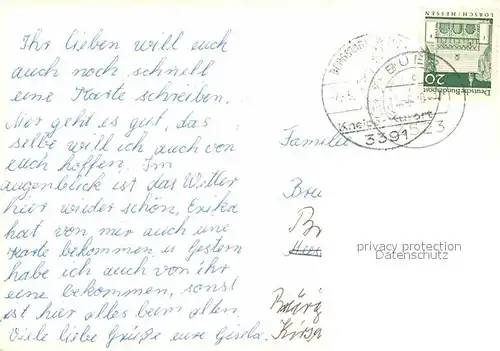 Ihr Lieben will euch
auch noch schnell
eine Karte schreiben.
Mir geht es gut, das
selbe will ich auch von
euch hoffen. Im
augenblick ist das Wetter
hier wieder schön, Erika
hat von mir auch eine
Karte bekommen u Gestern
habe ich auch von ihr
eine bekommen, sonst
ist hier alles beim alten.
Viele liebe Grüße eure Gisela.
LORSCH/HESSEN
20
Deutsche Bundespost
Kneipp-Kurort
3391
Familie
Bru
Br
privacy protection
Datenschutz